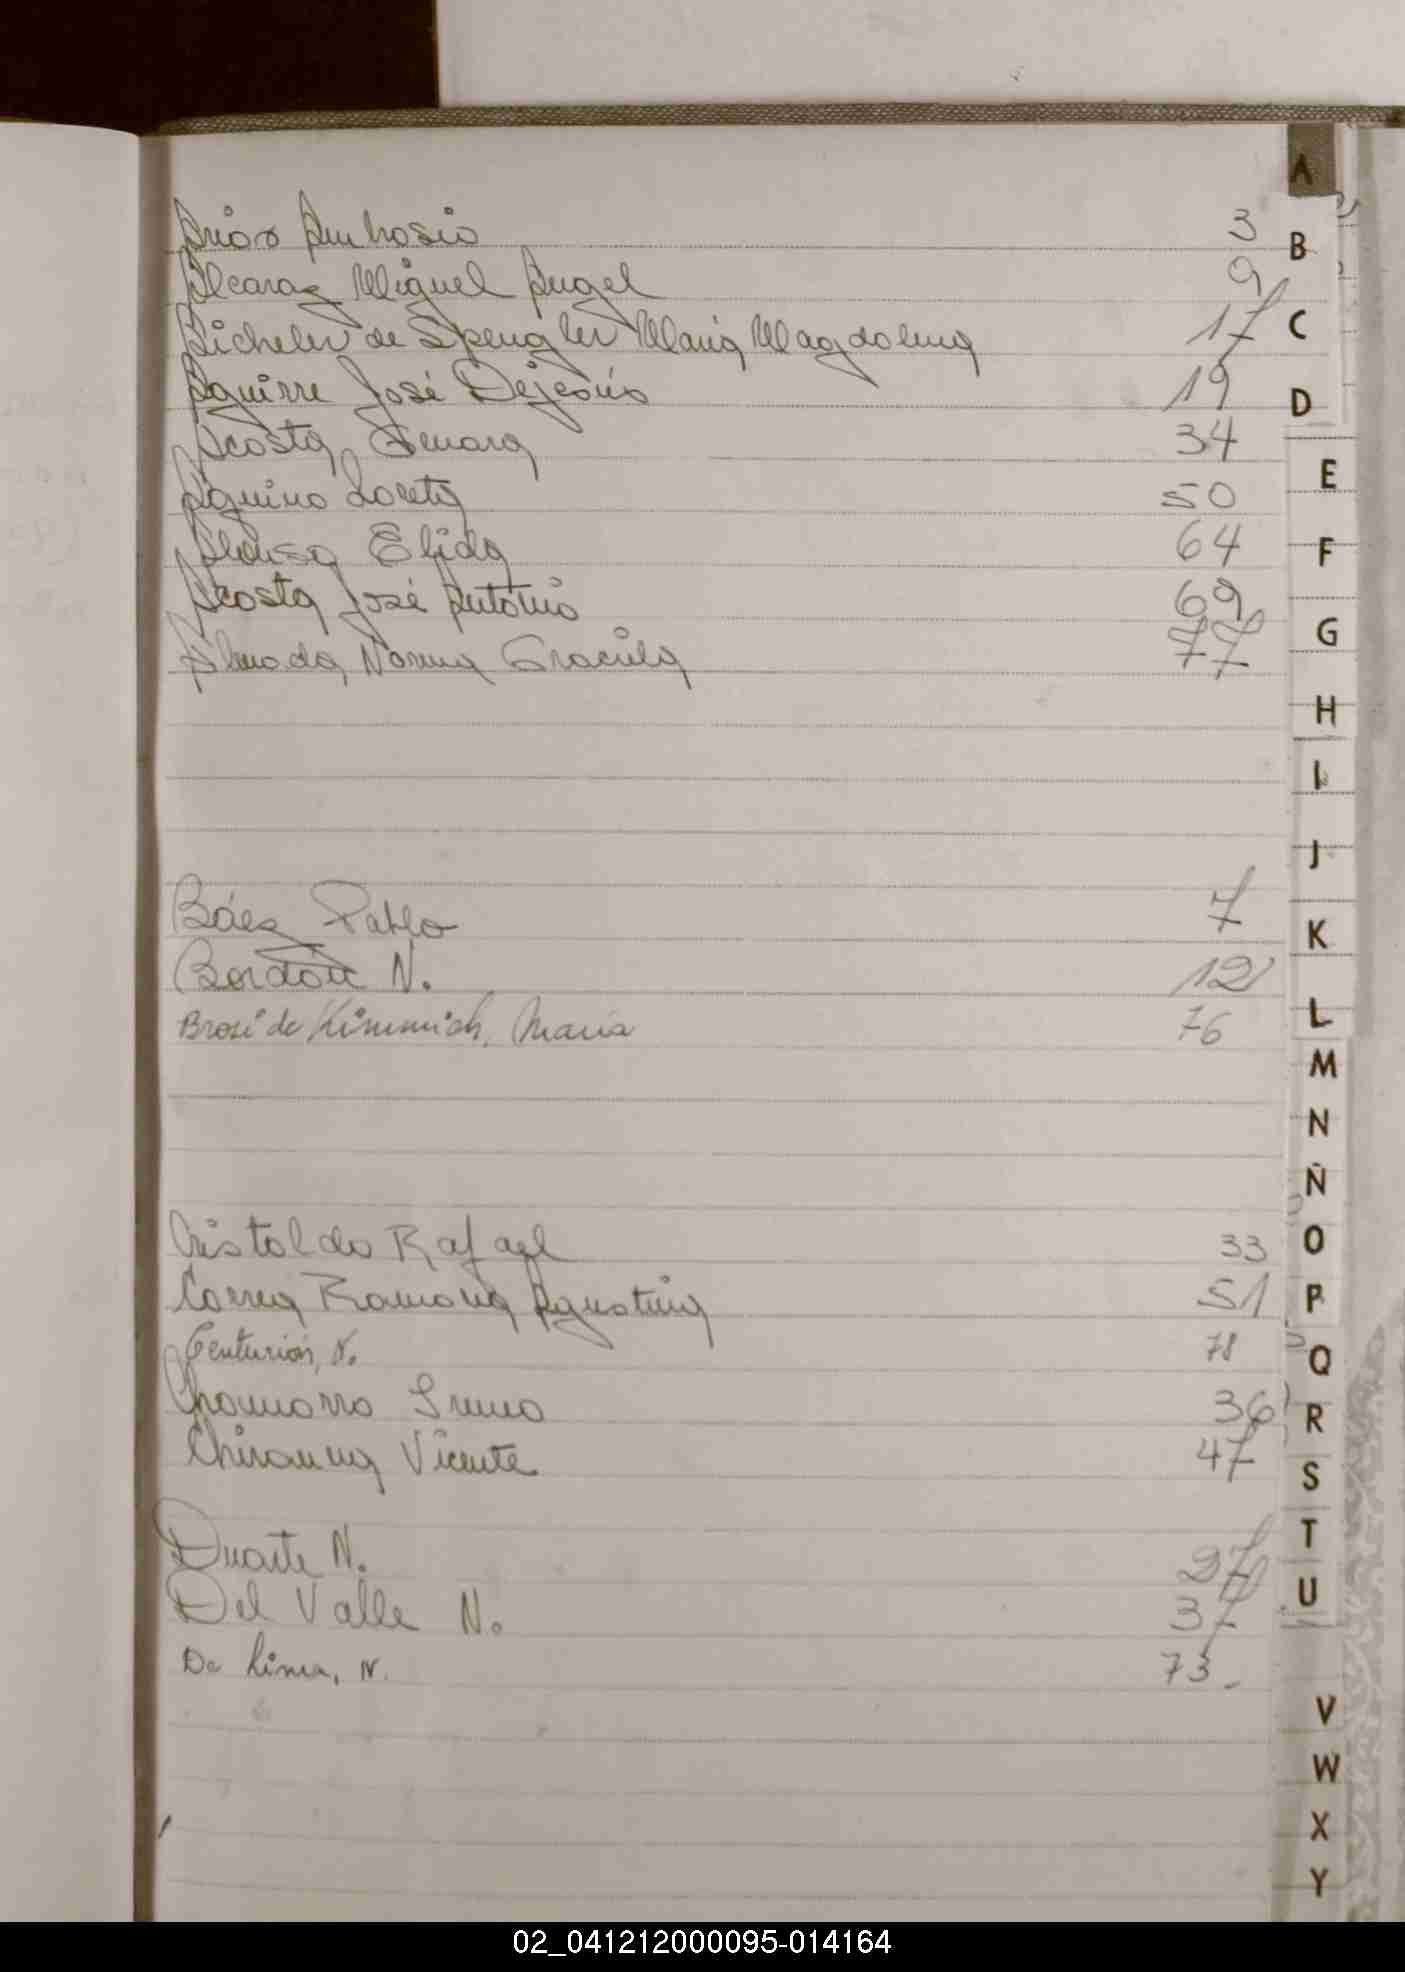 Arias Ambrosio 3
Alcaraz Miguel Angel 9
Aicheler de Spengler María Magdalena 17
Aguirre José Dejesús 19
Acosta Genara 34
Aquino Loreta 50
Alonso Elida 64
Acosta José Antonio 69
Almada, Norma Graciela 77
Báez Pablo 7
Bordón N. 12
Brosi de Kimmich, María 76
Cristaldo Rafael 33
Correa Ramona Agustina 51
Centurión, N. 78
Chamorro Irma 36
Chiranna Vicente 47
Duarte N. 27
Del Valle N. 37
De Lima, N. 73.
A
B
C
D
E
F
G
H
I
J
K
L
M
N
Ñ
O
P
Q
R
S
T
U
V
W
X
Y
02_041212000095-014164